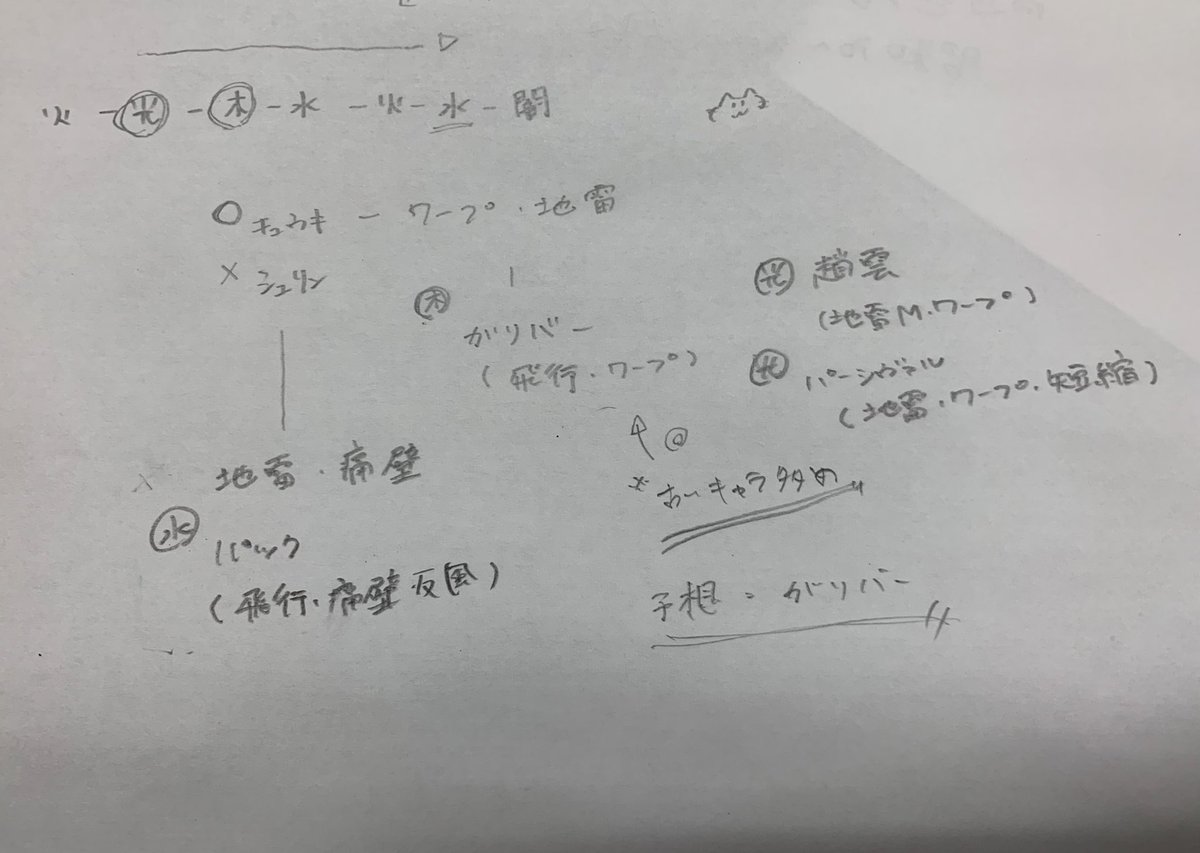 火 - 光 - 木 - 水 - 火 - 水 - 闇
○ キュウキ - ワープ・地雷
× シュリン
木 ガリバー
(飛行・ワープ)
光 趙雲
(地雷M・ワープ)
光 パーシヴァル
(地雷・ワープ・短縮)
地雷・痛壁
水 パック
(飛行・痛壁 反風)
↑@
*あーキャラ多め
予想 = ガリバー